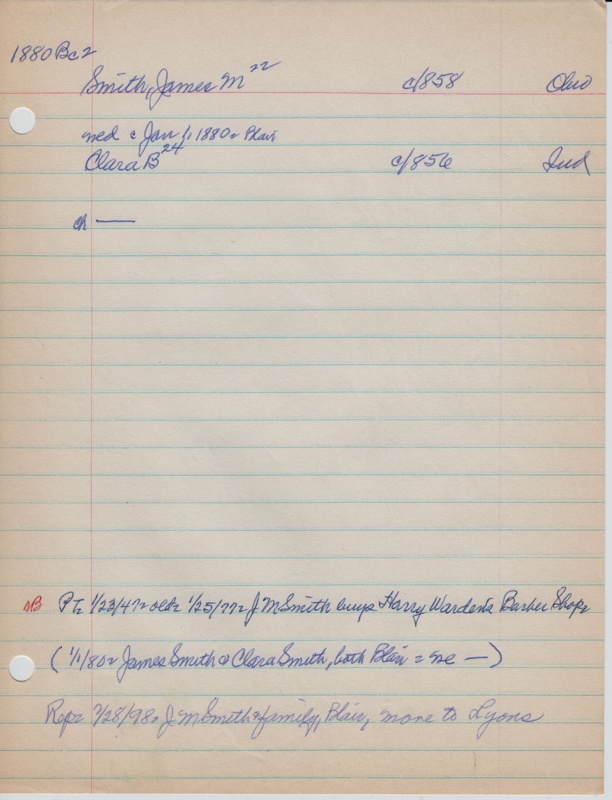 1880 Bc2
Smith, James M 22 c1858 Ohio
med c Jan 1, 1880 = Blair
Clara B 24 c1856 Ind
ch —
NB PT= 1/23/47= old= 1/25/77= J M Smith buys Harry Warden's Barber Shop=
(1/1/80= James Smith @ Clara Smith, both Blair = me —)
Rep= 7/28/98= J M Smith & family, Blair, move to Lyons